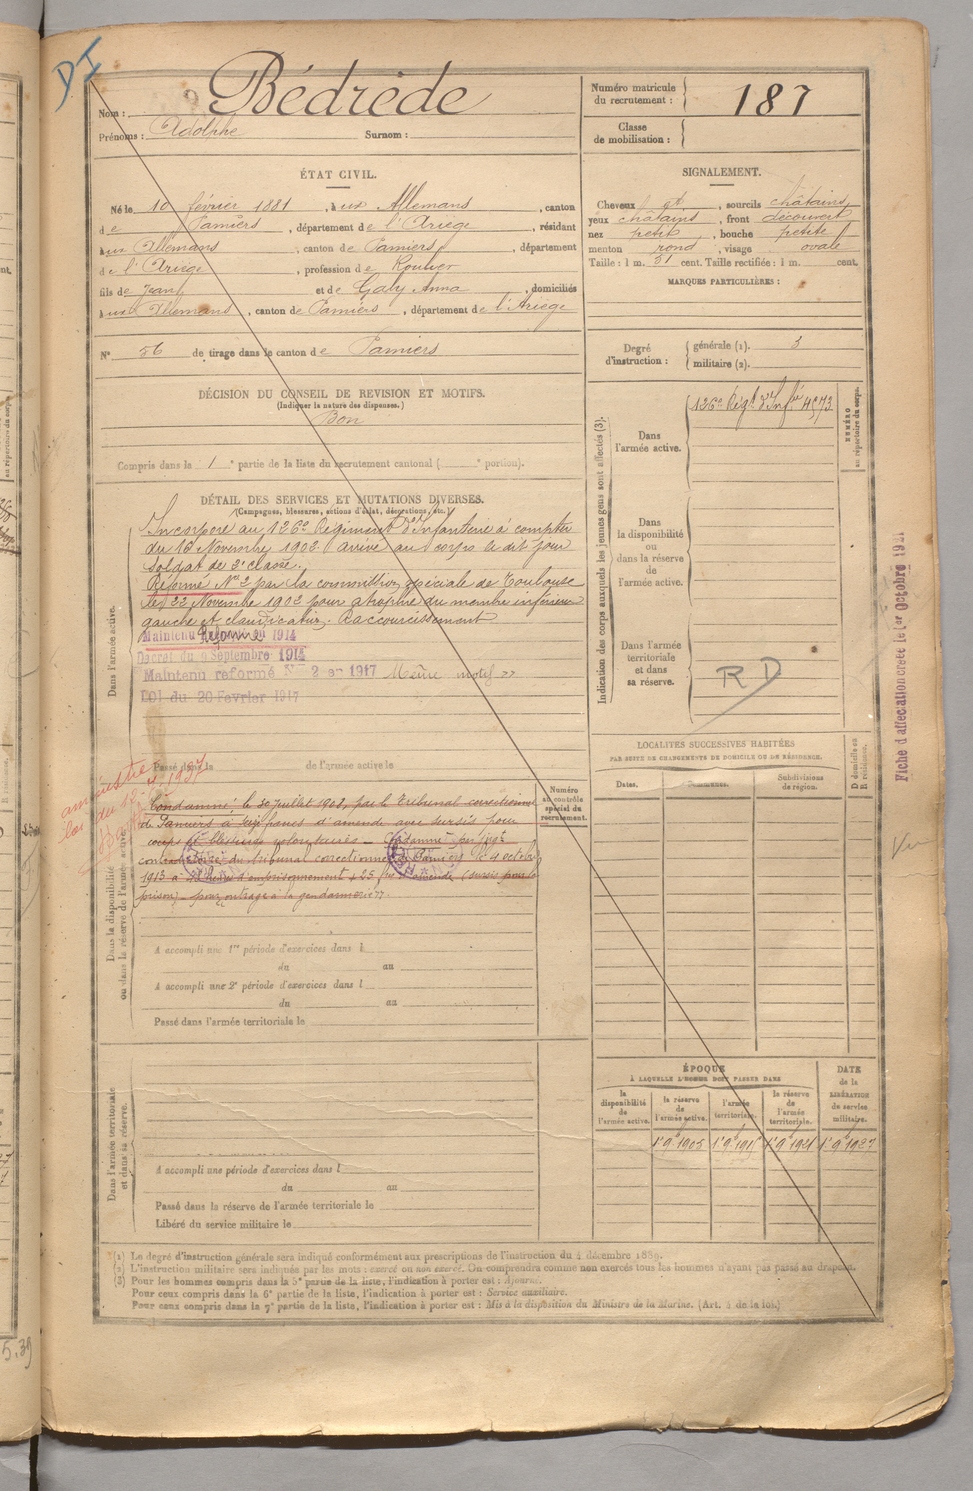 DI
Nom : Bédrède
Prénoms : Adolphe Surnom :
Numéro matricule du recrutement : 187
Classe de mobilisation :
ÉTAT CIVIL.
Né le 10 février 1881, à ux Allemans, canton
de Pamiers, département de l'Ariège, résidant
à ux Allemans, canton de Pamiers, département
de l'Ariège, profession de
fils de Jean et de Galy Anna, domiciliés
à ux Allemans, canton de Pamiers, département de l'Ariège
N° 56 de tirage dans le canton de Pamiers
SIGNALEMENT.
Cheveux, sourcils châtains
yeux châtains, front découvert
nez petit, bouche petite
menton rond, visage ovale
Taille : 1 m. 51 cent. Taille rectifiée : 1 m. cent.
MARQUES PARTICULIÈRES :
Degré d'instruction : générale (1). 3
militaire (2).
DÉCISION DU CONSEIL DE REVISION ET MOTIFS.
(Indiquer la nature des dispenses.)
Bon
Compris dans le 1e partie de la liste du recrutement cantonal ( e portion).
DÉTAIL DES SERVICES ET MUTATIONS DIVERSES.
(Campagnes, blessures, actions d'éclat, décorations, etc.)
Dans l'armée active.
Incorporé au 126e Régiment d'Infanterie à compter
du 16 Novembre 1902 arrivé au corps le dit jour
soldat de 2e classe.
Réformé N° 2 par la commission spéciale de Toulouse
le 22 Novembre 1902 pour atrophie du membre inférieur
gauche et claudication. Raccourcissement
Maintenu Réformé 1914
Décret du 9 Septembre 1914
Maintenu reformé N° 2 en 1917 Même motif
LOI du 20 Fevrier 1917
Passé dans la de l'armée active le
amnistié
loi du 12-7 1937
Dans la disponibilité ou dans la réserve de l'armée active.
Condamné le 30 Juillet 1908, par le Tribunal correctionnel
de Pamiers à francs d'amende avec sursis pour
coups et blessures volontaires – Condamné par jugt
contradictoire du tribunal correctionnel de Pamiers le 4 octobre
1913 à d'emprisonnement + 25 fr d'amende (sursis pour la
prison) – pour outrage à la gendarmerie
Numéro au contrôle spécial du recrutement.
A accompli une 1re période d'exercices dans l
du au
A accompli une 2e période d'exercices dans l
du au
Passé dans l'armée territoriale le
Dans l'armée territoriale et dans sa réserve.
A accompli une période d'exercices dans l
du au
Passé dans la réserve de l'armée territoriale le
Libéré du service militaire le
Indication des corps auxquels les jeunes gens sont affectés (3).
NUMÉRO au répertoire du corps.
Dans l'armée active.
126e Régt d'Infie 4573
Dans la disponibilité ou dans la réserve de l'armée active.
Dans l'armée territoriale et dans sa réserve.
RD
LOCALITÉS SUCCESSIVES HABITÉES
PAR SUITE DE CHANGEMENTS DE DOMICILE OU DE RÉSIDENCE.
Dates. Communes. Subdivisions de région. D domicile ou R résidence.
ÉPOQUE
À LAQUELLE L'HOMME DOIT PASSER DANS
la disponibilité de l'armée active. la réserve de l'armée active. l'armée territoriale. la réserve de l'armée territoriale.
DATE de la LIBÉRATION du service militaire.
1er 9bre 1905 1er 9bre 1915 1er 9bre 1921 1er 9bre 1927
Fiche d'affectation créée le 1er Octobre 1921
Vu
(1) Le degré d'instruction générale sera indiqué conformément aux prescriptions de l'instruction du 4 décembre 1889.
(2) L'instruction militaire sera indiquée par les mots : exercé ou non exercé. On comprendra comme non exercés tous les hommes n'ayant pas passé au drapeau.
(3) Pour les hommes compris dans la 5e partie de la liste, l'indication à porter est : Ajourné.
Pour ceux compris dans la 6e partie de la liste, l'indication à porter est : Service auxiliaire.
Pour ceux compris dans la 7e partie de la liste, l'indication à porter est : Mis à la disposition du Ministre de la Marine. (Art. 4 de la loi.)
5.39